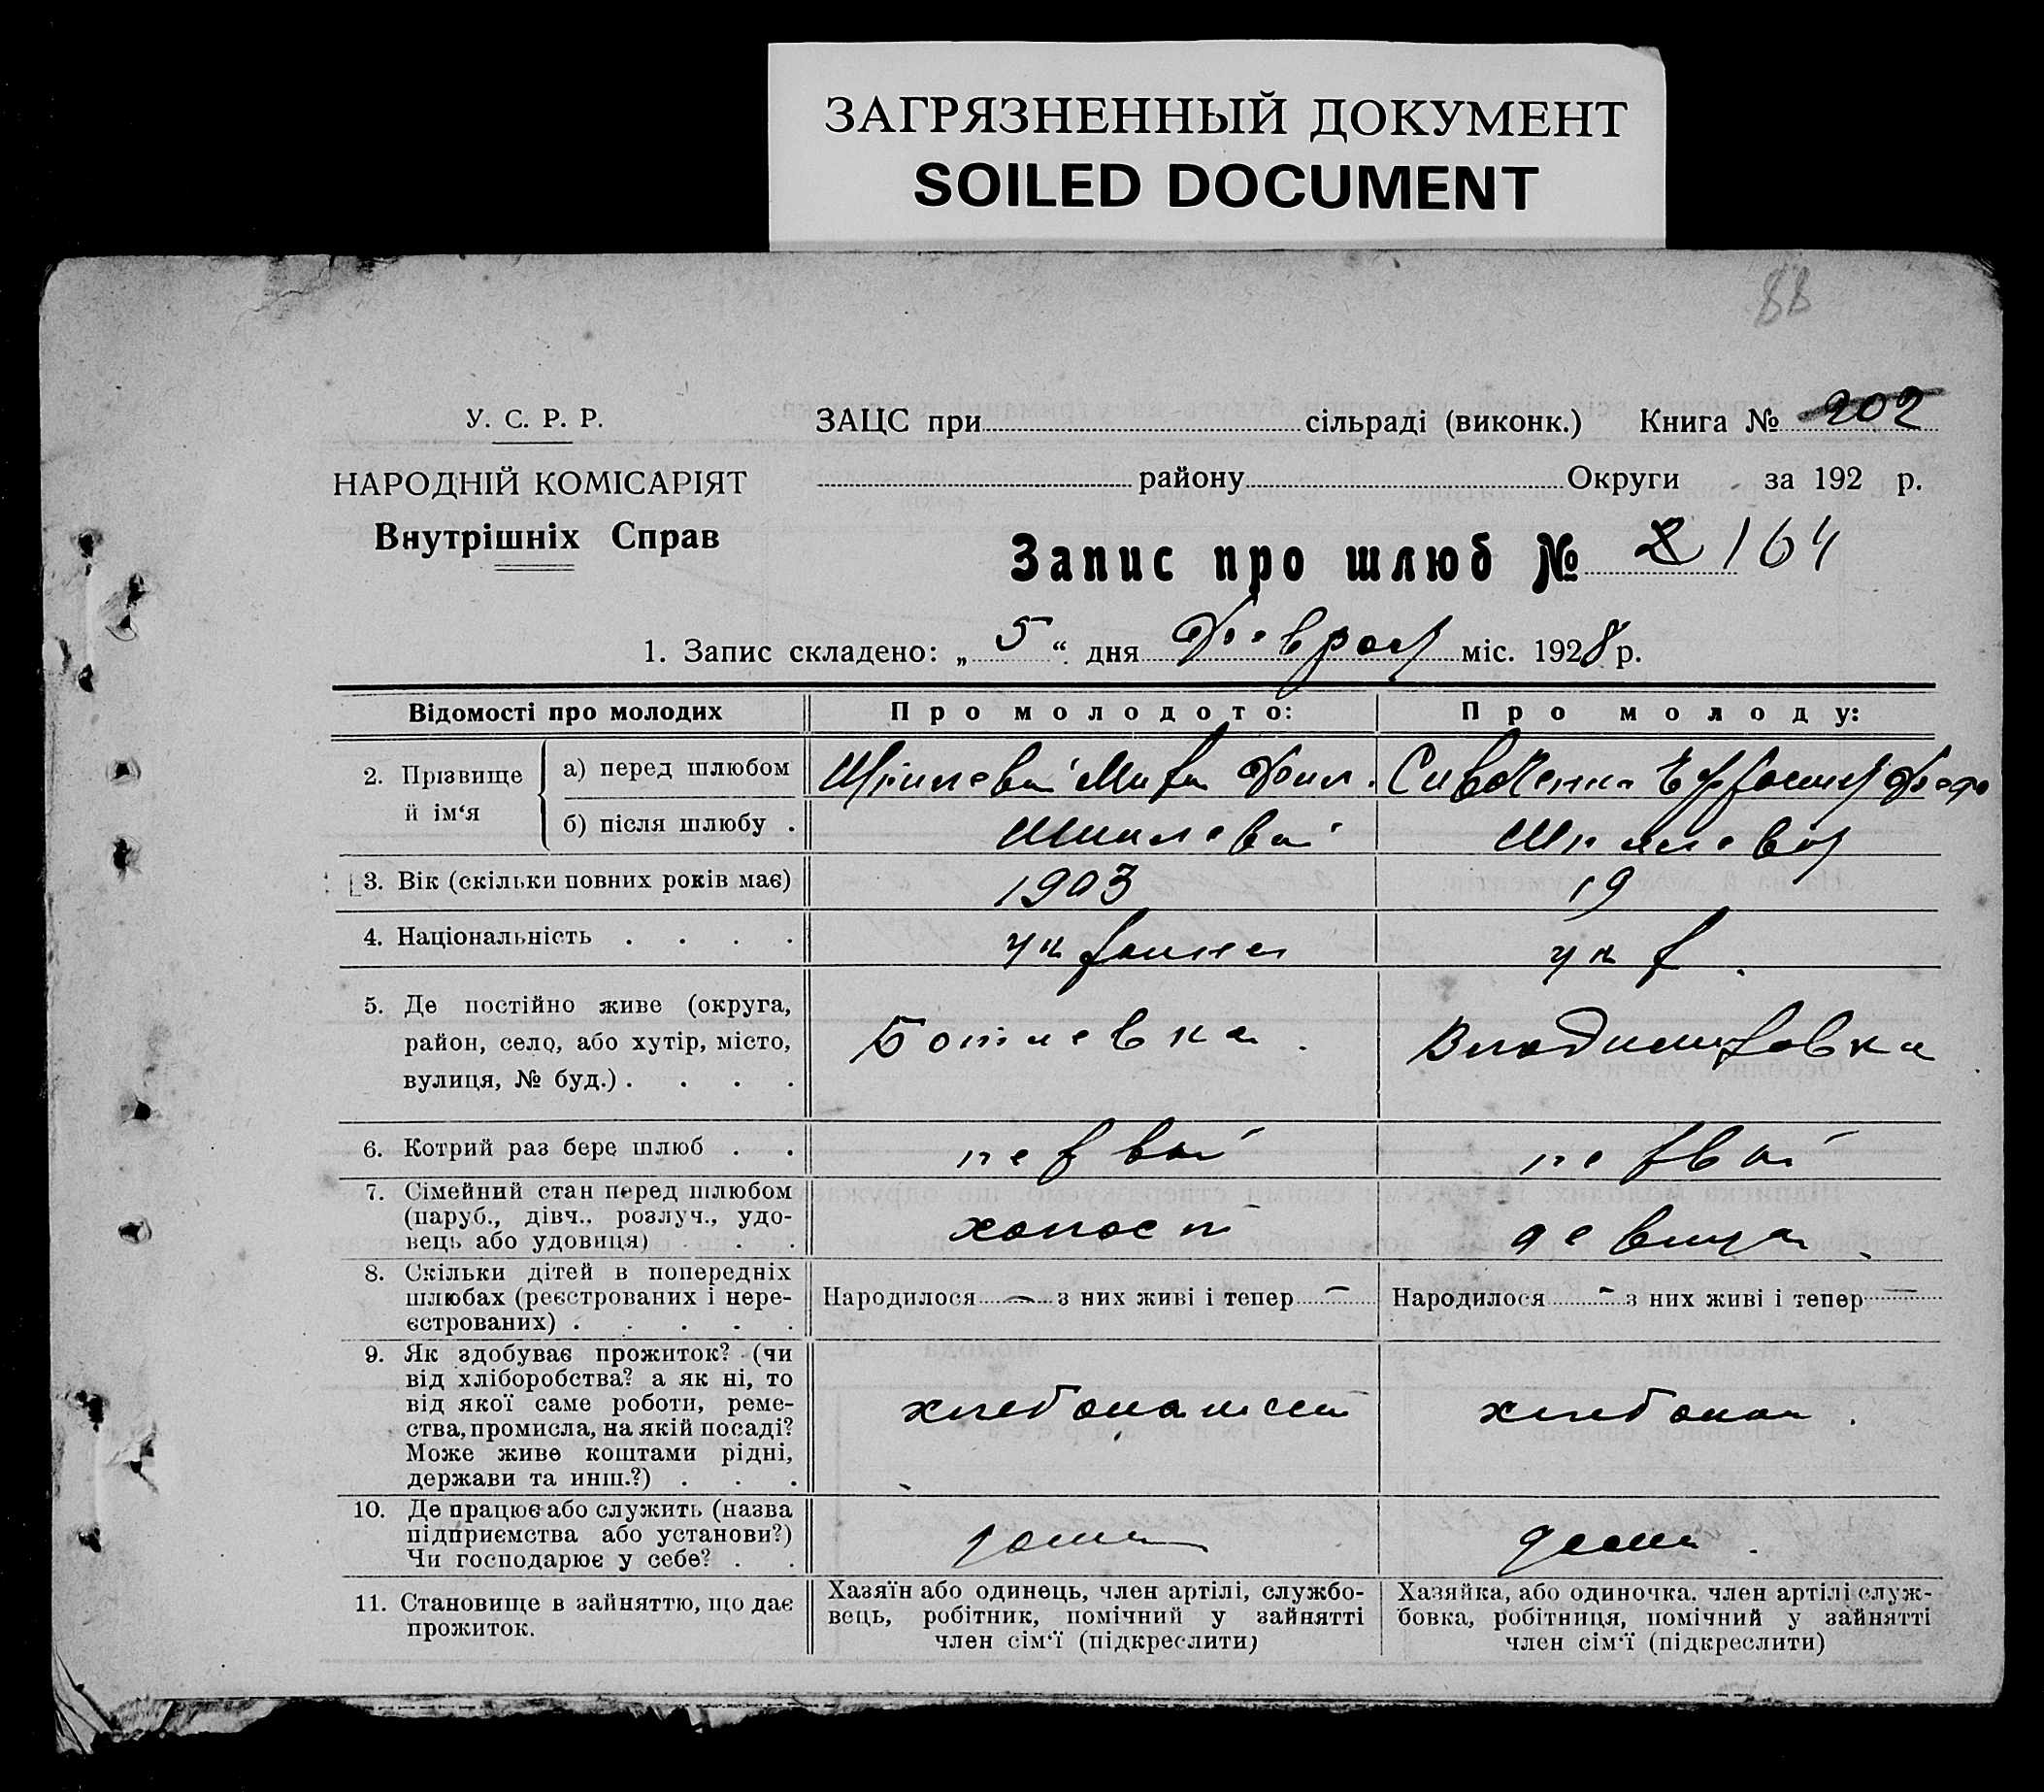 ЗАГРЯЗНЕННЫЙ ДОКУМЕНТ
SOILED DOCUMENT
88
У. С. Р. Р.
НАРОДНІЙ КОМІСАРІЯТ
Внутрішніх Справ
ЗАЦС при сільраді (виконк.) Книга № 202
району Округи за 192 р.
Запис про шлюб № 164
1. Запис складено: „ 5 “ дня Февраля міс. 1928 р.
Відомості про молодих
Про молодого:
Про молоду:
2. Прізвище й ім‘я
а) перед шлюбом
б) після шлюбу .
3. Вік (скільки повних років має)
1903
19
4. Національність . . . .
украинец
укр.
5. Де постійно живе (округа,
район, село, або хутір, місто,
вулиця, № буд.) . . . .
Владимировка
6. Котрий раз бере шлюб . .
первый
первый
7. Сімейний стан перед шлюбом
(паруб., дівч., розлуч., удо-
вець або удовиця) . . .
холост
девица
8. Скільки дітей в попередніх
шлюбах (реєстрованих і нере-
єстрованих) . . . . .
Народилося — з них живі і тепер —
Народилося — з них живі і тепер —
9. Як здобуває прожиток? (чи
від хліборобства? а як ні, то
від якої саме роботи, реме-
ства, промисла, на якій посаді?
Може живе коштами рідні,
держави та инш.?) . . .
хлебопашест
хлебопа .
10. Де працює або служить (назва
підприємства або установи?)
Чи господарює у себе? . .
дома
дома .
11. Становище в зайняттю, що дає
прожиток.
Хазяїн або одинець, член артілі, службо-
вець, робітник, помічний у зайнятті
член сім‘ї (підкреслити)
Хазяйка, або одиночка. член артілі служ-
бовка, робітниця, помічний у зайнятті
член сім‘ї (підкреслити)